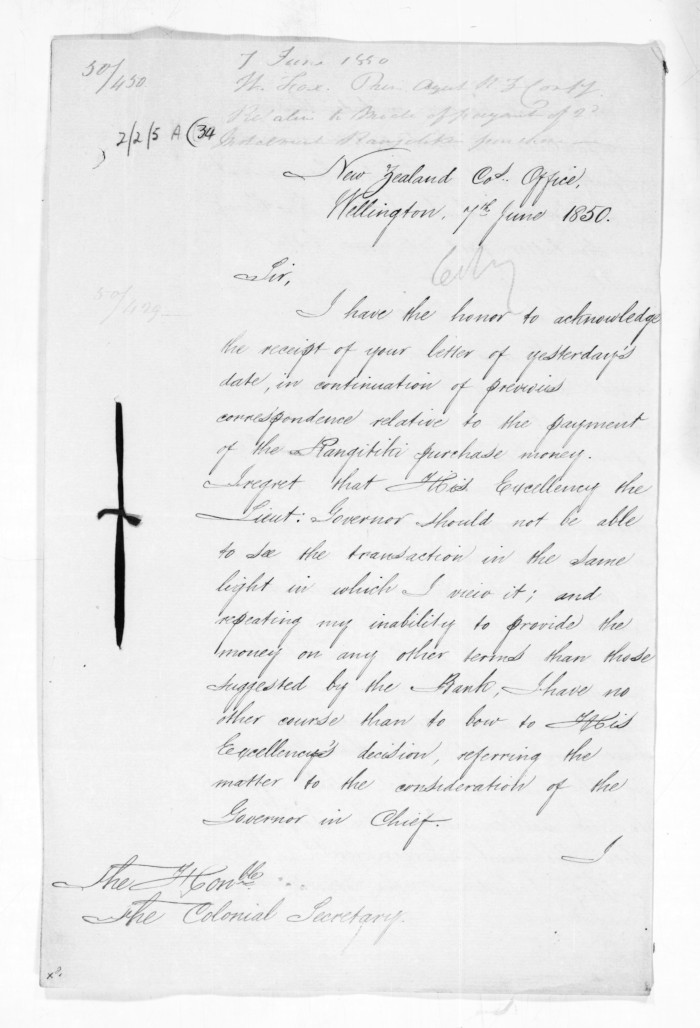 50/450
7 June 1850
W. Fox. Prin. Agent N Z Compy.
Relative to Mode of payment of 2d
Instalment Rangitiki purchase
2/2/5 A (34
New Zealand Cos. Office,
Wellington, 7th June 1850.
Sir,
50/429
I have the honor to acknowledge
the receipt of your letter of yesterday's
date, in continuation of previous
correspondence relative to the payment
of the Rangitiki purchase money.
I regret that His Excellency the
Lieut: Governor should not be able
to see the transaction in the same
light in which I view it; and
repeating my inability to provide the
money on any other terms than those
suggested by the Bank, I have no
other course than to bow to His
Excellency's decision, referring the
matter to the consideration of the
Governor in Chief.
I
The Honble
The Colonial Secretary.